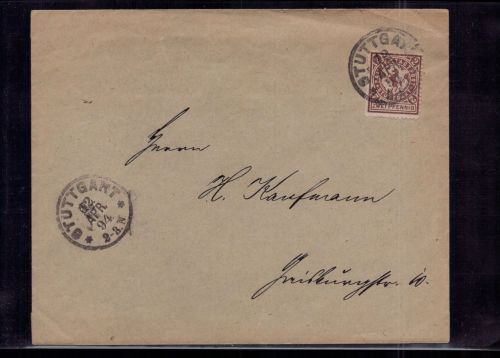 STUTTGART
ZWEI PFENNIG
Herrn
H. Kaufmann
Gaisburgstr. 10.
STUTTGART
22
APR
94
2-3.N